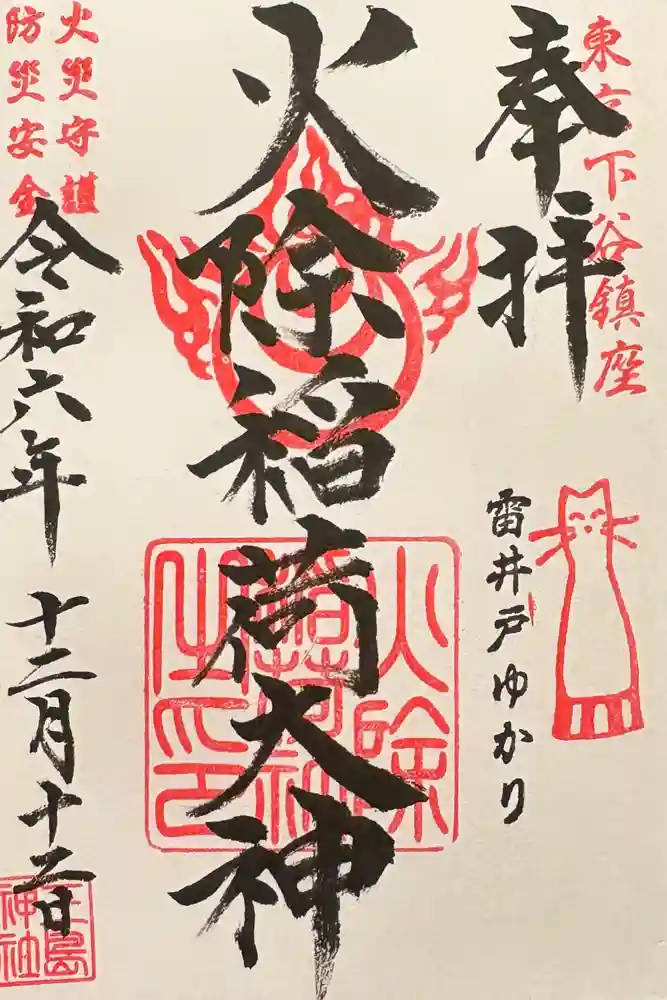 東京下谷鎮座
奉拝
雷井戸ゆかり
火除稲荷大神
火除
稲荷神
之印
火災守護
防災安全
令和六年
十二月十二日
神社